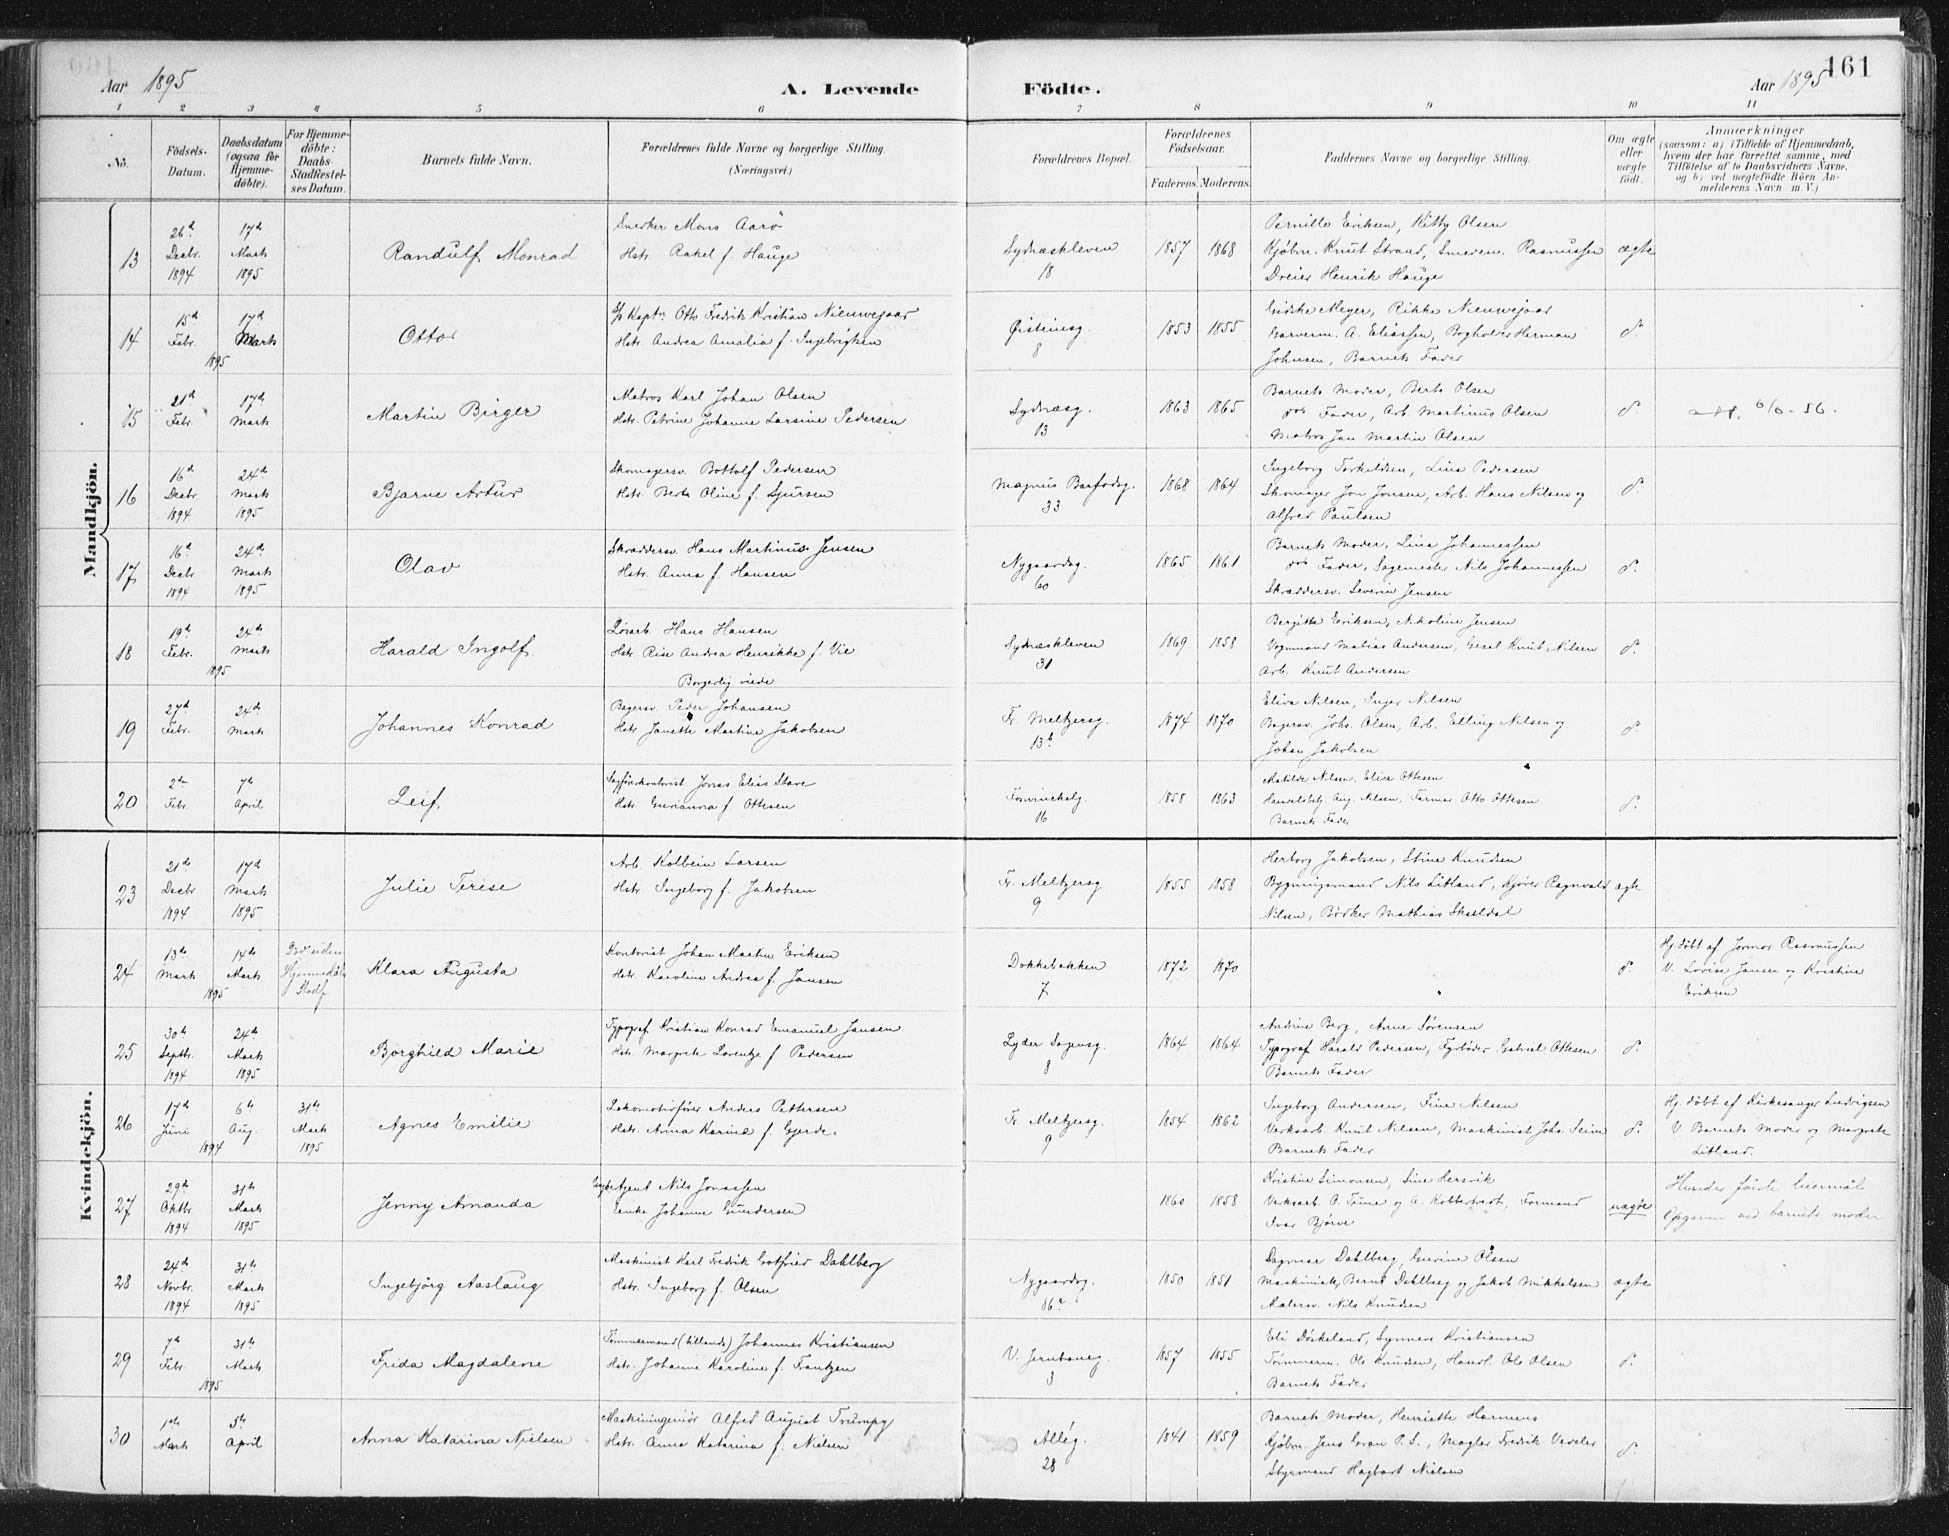 161
Aar 1895
A. Levende
Födte.
Aar 1895
1 2 3 4 5 6 7 8 9 10 11
No.
Födsels-Datum.
Daabsdatum (ogsaa for Hjemme-döbte).
For Hjemme-döbte: Daabs-Stadfæstel-ses Datum.
Barnets fulde Navn.
Forældrenes fulde Navne og borgerlige Stilling. (Næringsvei.)
Forældrenes Bopæl.
Forældrenes Födselsaar.
Faderens. Moderens.
Faddernes Navne og borgerlige Stilling.
Om ægte eller uægte födt.
Anmærkninger
(saasom: a) i Tilfælde af Hjemmedaab, hvem der har forrettet samme, med Tilföielse af to Daabsvidners Navne, og b) ved uægtefödte Börn An-melderens Navn m. V.)
Mandkjön.
13 26de Decbr. 1894 17de Marts 1895
Randulf Monrad
Snerker Mons Aarö
Hstr. Rakel f. Hauge
Sydnæskleven 18
1857 1868
Pernille Eriksen, Kitty Olsen
Kjöbm. Knut Strand, Smedsv. Rasmussen
Dreier Henrik Hauge
ægte
14 15de Febr. 17de Marts 1895
Otto
Kapt. Otto Fredrik Kristian Nieuwejaar
Hstr. Andrea Amalia f. Ingebrigtsen
Øisteinsg. 8
1853 1855
Meyer, Rikke Nieuwejaar
Garverm. A. Eliassen, Bogholder Herman
Johnsen, Barnets Fader
do.
15 21de Febr. 17de Marts
Martin Birger
Matros Karl Johan Olsen
Hstr. Petrine Johanne Larsine Pedersen
Sydnæsg. 13
1863 1865
Barnets Moder, Berte Olsen
do Fader, Arb. Martinus Olsen
Matros Jan Martin Olsen
do.
16 16de Decbr. 1894 24de Marts 1895
Bjarne Artur
Skomagersv. Bottolf Pedersen
Hstr. Berte Oline f. Sjursen
Magnus Barfodsg. 33
1868 1864
Ingeborg Torkeldsen, Lina Pedersen
Skomager Jon Jonsen, Arb. Hans Nilsen og
Alfred Paulsen
do.
17 16de Decbr. 1894 24de Marts 1895
Olav
Skræddersv. Hans Martinus Jensen
Hstr. Anna f. Hansen
Nygaardsg. 60
1865 1861
Barnets Moder, Lina Johannessen
do Fader, Sagmester Nils Johannessen
Skræddersv. Severin Jensen
do.
18 19de Febr. 24de Marts 1895
Harald Ingolf
Hans Hansen
Hstr. Rise Andrea Henrikke f. Vie
Borgerlig viede
Sydnæskleven 31
1869 1858
Bergitte Eriksen, Nikoline Jensen
Vognmand Matias Andersen, Gesel Knut Nilsen
Arb. Knut Andersen
do.
19 27de Febr. 24de Marts
Johannes Konrad
Bagersv. Peder Johansen
Hstr. Janette Martine Jakobsen
Fr. Meltzersg. 13b
1874 1870
Elisa Nilsen, Inger Nilsen
Bagersv. Johs. Olsen, Arb. Elling Nilsen og
Johan Jakobsen
do.
20 2de Febr. 7de April
Leif
Sagförerkontorist Jonas Elias Stave
Hstr. Gurianna f. Ottesen
Fosvinckelg. 16
1858 1863
Matilde Nilsen, Elisa Ottesen
Handelsbetj. Aug. Nilsen, Farmer Otto Ottesen
Barnets Fader
do.
Kvindekjön.
23 21de Decbr. 1894 17de Marts 1895
Julie Terese
Arb. Kolbein Larsen
Hstr. Ingeborg f. Jakobsen
Fr. Meltzersg. 9
1855 1858
Herborg Jakobsen, Stine Knudsen
Bygningsmand Nils Litland, Kjörer Ragnvald
Nilsen, Bödker Mathias Skaldal
ægte
24 13de Marts 14de Marts 1895
Död uden Hjemmedåbs Stadf.
Klara Augusta
Kontorist Johan Martin Eriksen
Hstr. Karoline Andrea f. Jansen
Dokkebakken 7
1872 1870
do.
Hj. döbt af Jormor Rasmussen
V. Lovise Jansen og Kristine
Eriksen
25 30te Septbr. 1894 24de Marts 1895
Borghild Marie
Typograf Kristian Konrad Emanuel Jansen
Hstr. Margrete Lorentze f. Pedersen
Lyder Sagensg. 8
1864 1864
Andrine Berg, Arne Sörensen
Typograf Harald Pedersen, Fyrböder Gabriel Ottesen
Barnets Fader
do.
26 17de Juni 6te Aug. 1894 31te Marts 1895
Agnes Emilie
Lokomotivförer Anders Pettersen
Hstr. Anna Karine f. Gjerde.
Fr. Meltzersg. 9
1854 1862
Ingeborg Andersen, Fine Nilsen
Verksarb. Knut Nilsen, Maskinist Johs. Seim
Barnets Fader
do.
Hj. döbt af Kirkesanger Ludvigsen
V. Barnets Moder og Margrete
Litland.
27 29de Oktbr. 1894 31te Marts 1895
Jenny Amanda
Agent Nils Jonassen
Enke Johanne Gundersen
1860 1858
Kristine Simonsen, Sine Hersvik
Verksarb. O. Teine og A. Kobbeltvedt, Formand
Ivar Björve
uægte
Hendes förste leiermål
Opgaven ved barnets moder
28 24de Novbr. 1894 31te Marts 1895
Ingebjörg Aaslaug
Maskinist Karl Fredrik Gotfried Dahlberg
Hstr. Ingeborg f. Olsen
Nygaardsg. 86a
1850 1851
Dagmar Dahlberg, Gurine Olsen
Maskinists. Bernt Dahlberg og Jakob Mikkelsen
Malersv. Nils Knudsen
ægte
29 7de Febr. 31te Marts 1895
Frida Magdalene
Tömmermand (tillands) Johannes Kristiansen
Hstr. Johanne Karoline f. Frantzen
V. Jernbaneg. 3
1857 1855
Eli Döskeland, Synneve Kristiansen
Tömmerm. Ole Knudsen, Handl. Ole Olsen
Barnets Fader
do.
30 1ste Marts 5te April
Anna Katarina Nielsen
Maskiningeniör Alfred August Trumpy
Hstr. Anna Katarina f. Nielsen
Alleg. 28
1841 1859
Barnets Moder, Henriette Harmens
Kjöbm. Jens Gran P. S., Mægler Fredrik Vedeler
Styrmand Hagbart Nielsen
do.